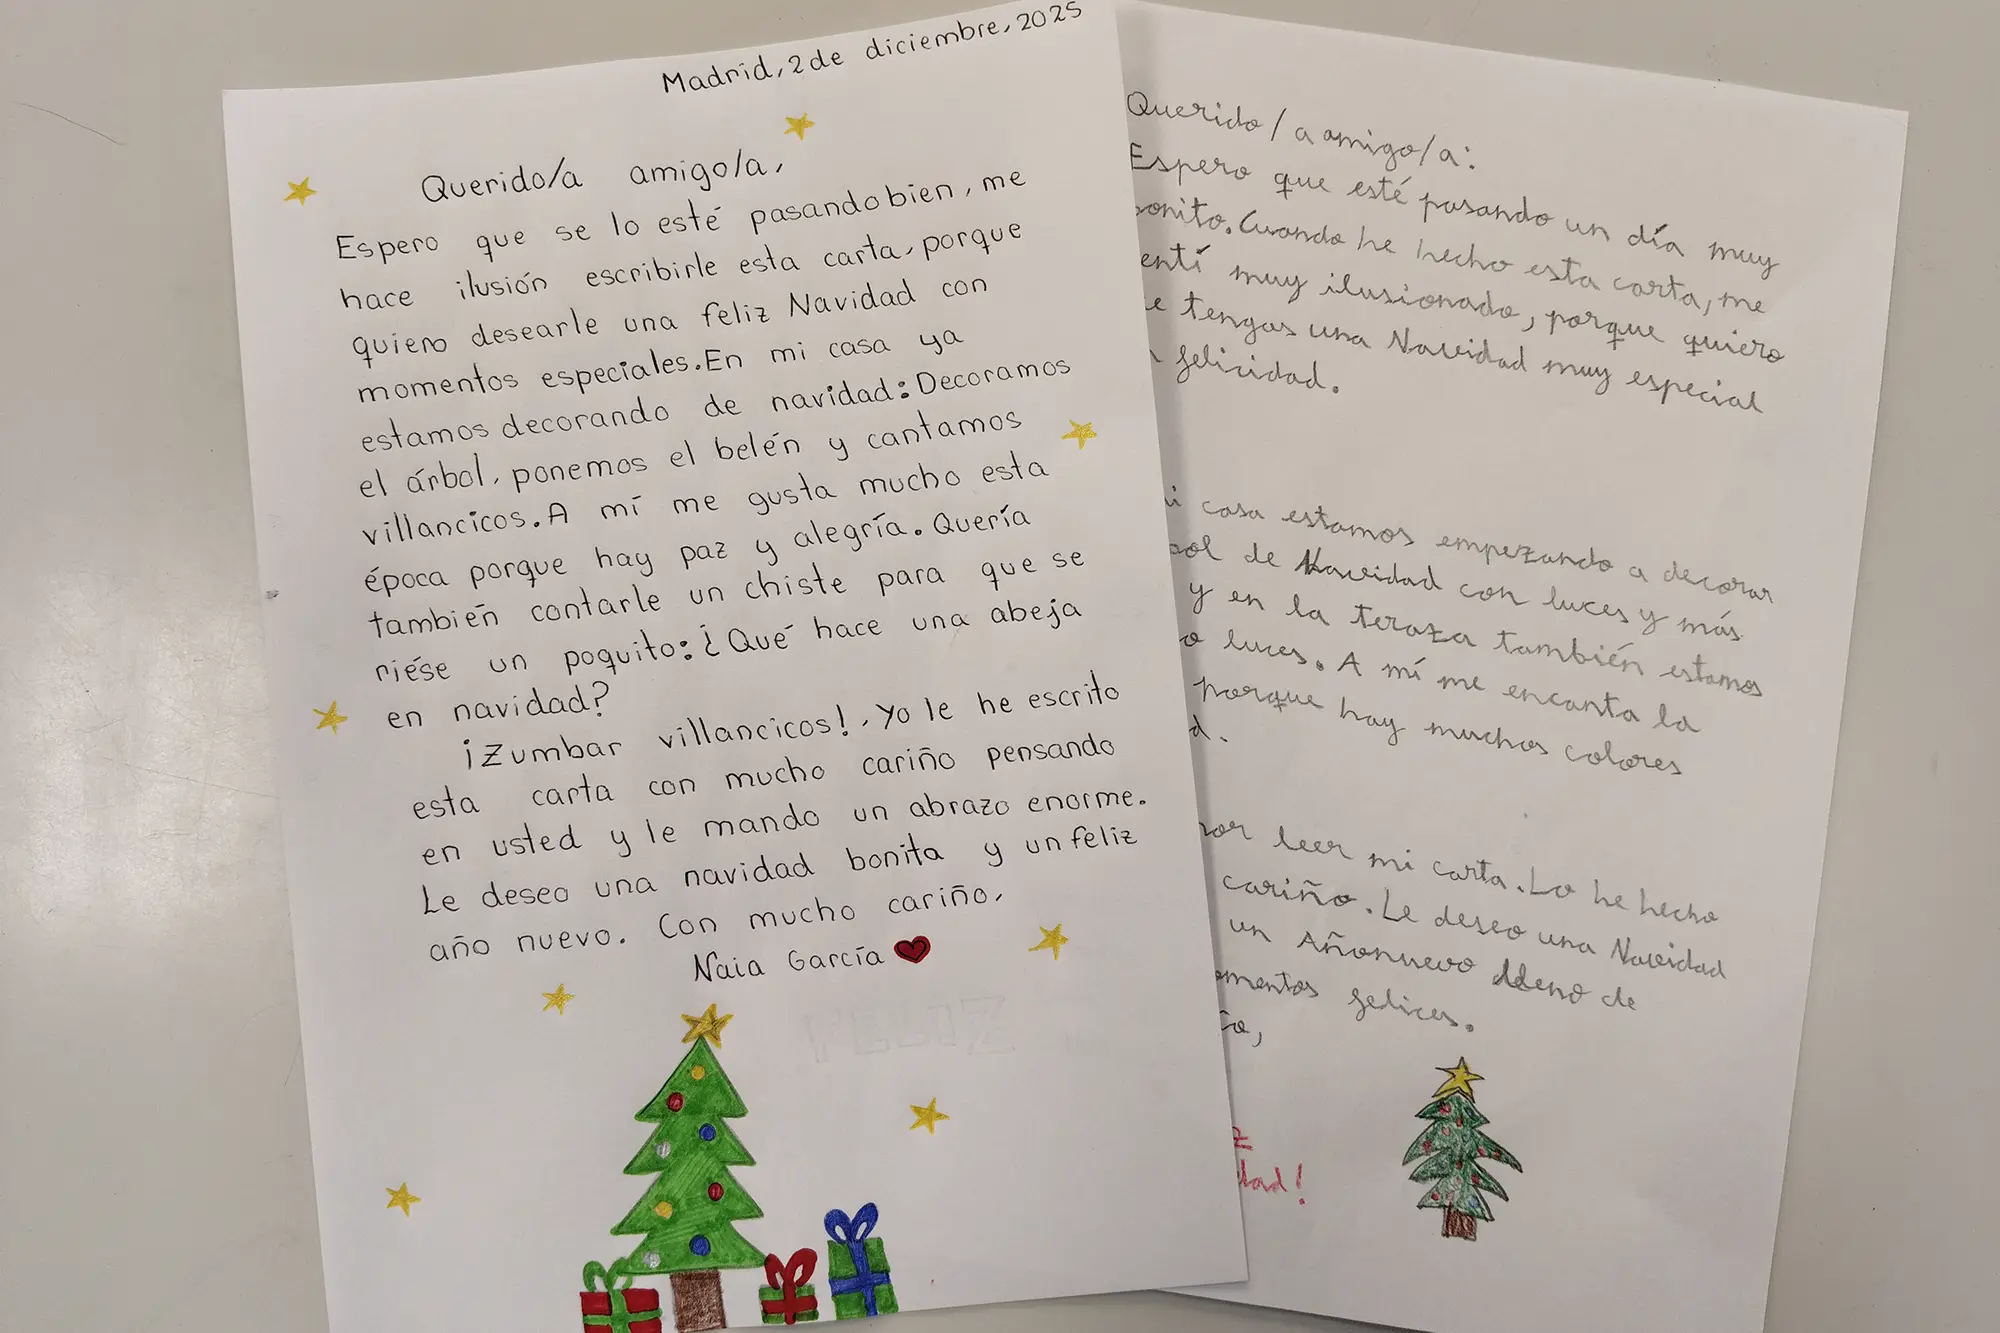 Madrid, 2 de diciembre, 2025
Querido/a amigo/a,
Espero que se lo esté pasando bien, me
hace ilusión escribirle esta carta, porque
quiero desearle una feliz Navidad con
momentos especiales. En mi casa ya
estamos decorando de navidad: Decoramos
el árbol, ponemos el belén y cantamos
villancicos. A mí me gusta mucho esta
época porque hay paz y alegría. Quería
también contarle un chiste para que se
riése un poquito: ¿Qué hace una abeja
en navidad?
¡Zumbar villancicos!, Yo le he escrito
esta carta con mucho cariño pensando
en usted y le mando un abrazo enorme.
Le deseo una navidad bonita y un feliz
año nuevo. Con mucho cariño,
Naia García
FELIZ
Querido/a amigo/a:
Espero que esté pasando un día muy
bonito. Cuando he hecho esta carta, me
entí muy ilusionado, porque quiero
e tengas una Navidad muy especial
felicidad.
i casa estamos empezando a decorar
bol de Navidad con luces y más
y en la teraza también estamos
o luces. A mí me encanta la
porque hay muchos colores
d.
por leer mi carta. Lo he hecho
cariño. Le deseo una Navidad
un Añonuevo lleno de
omentos felices.
ño,
dad!